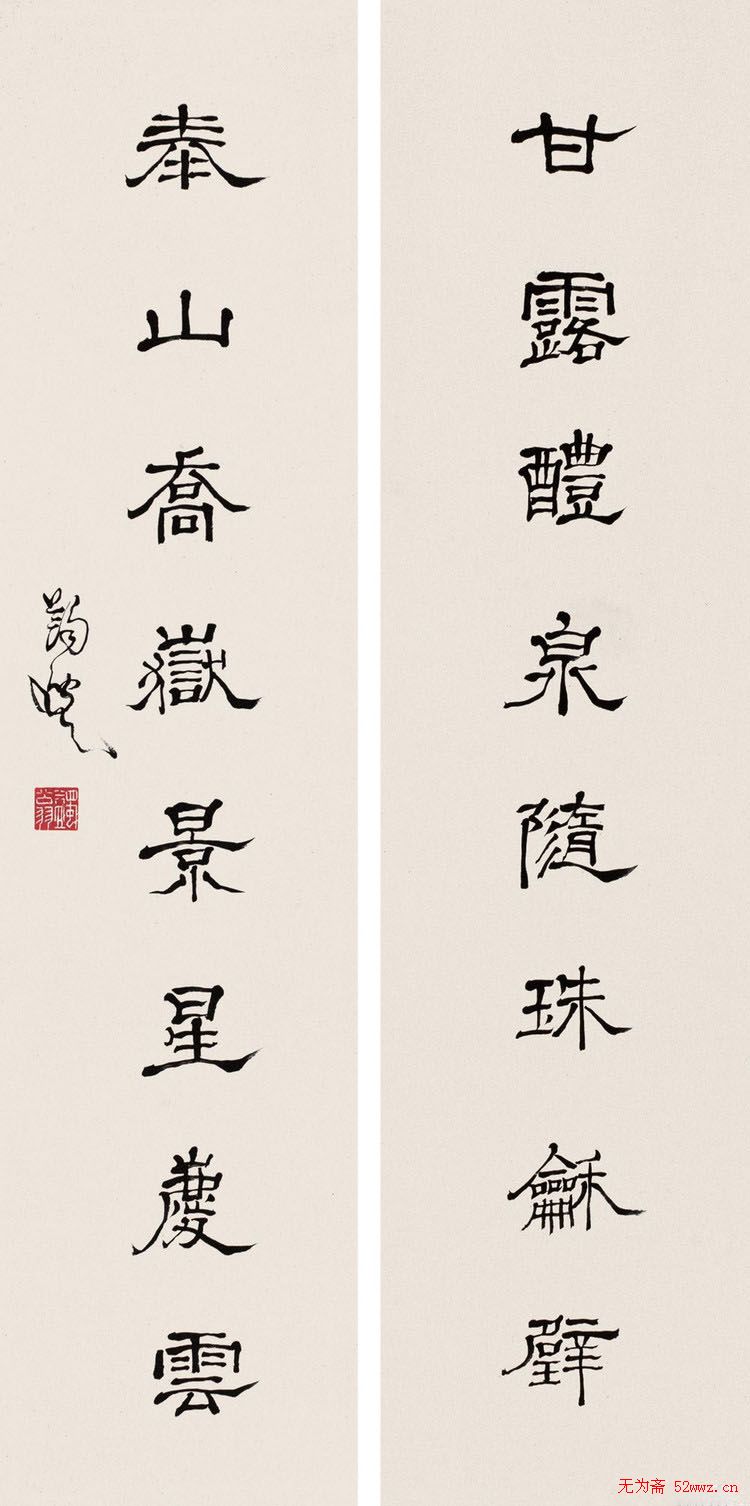 甘露醴泉隨珠龢璧
奉山喬嶽景星慶雲
无为斋 52wwz.cn